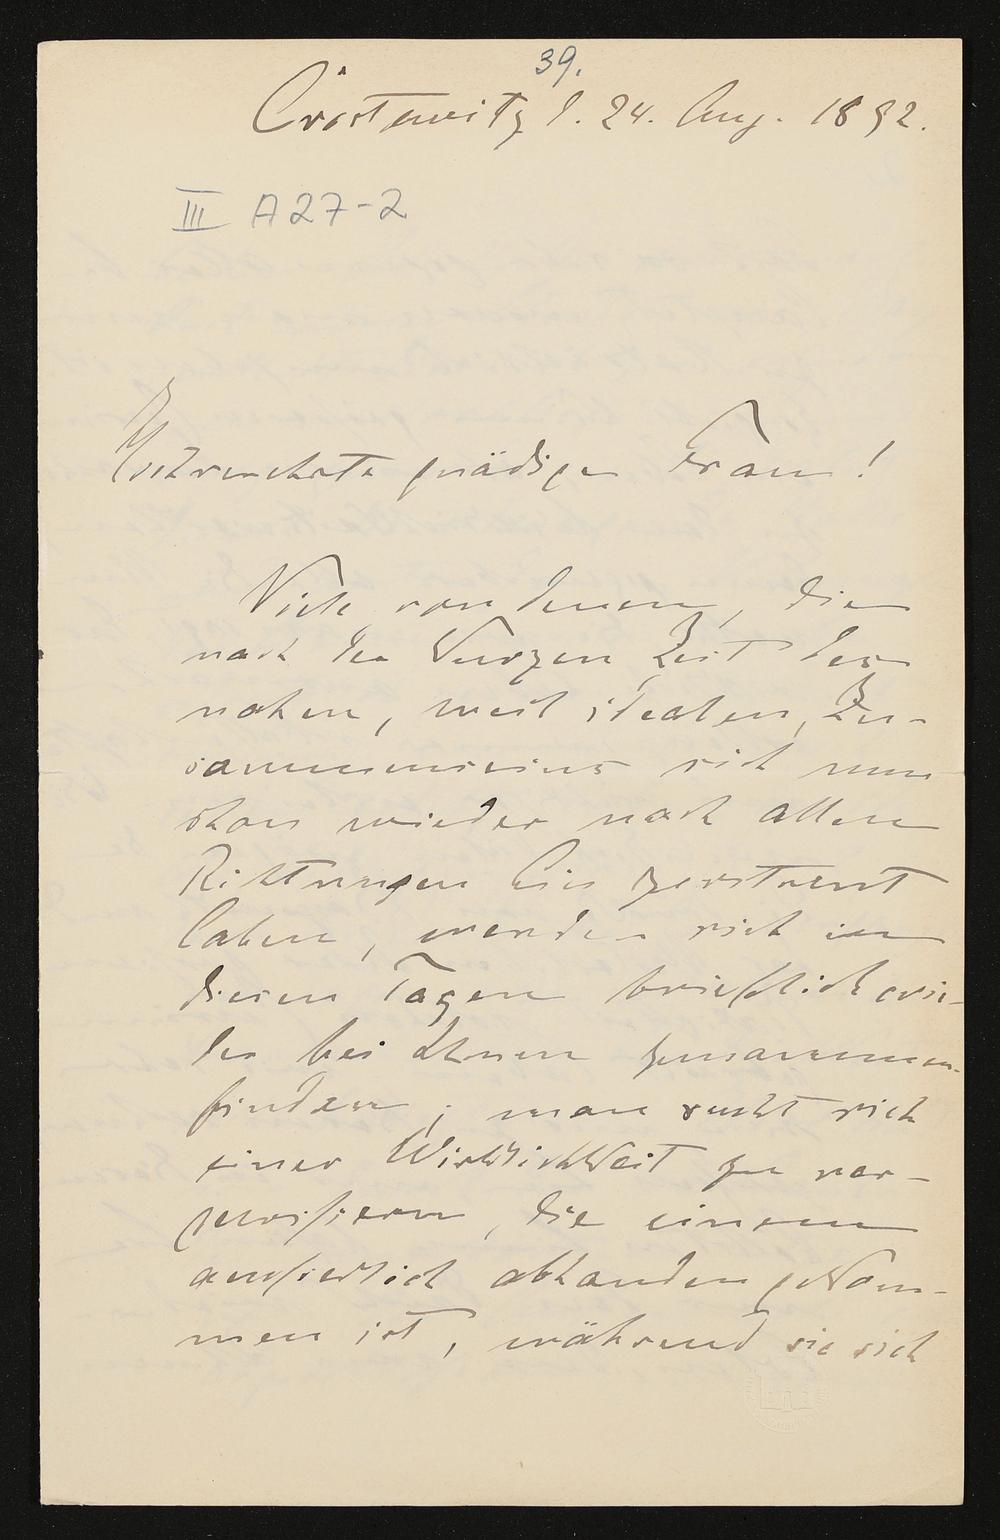 39.
Crostewitz d. 24. Aug. 1892.
III A27-2
Hochverehrte gnädige Frau!
Viele von denen, die
nach der kurzen Zeit des
nahen, weil idealen, Zu-
sammenseins sich nun
schon wieder nach allen
Richtungen hin zerstreut
haben, werden sich in
diesen Tagen brieflich wie-
der bei Ihnen zusammen-
finden; man sucht sich
einer Wirklichkeit zu ver-
gewissern, die einem
äusserlich abhanden gekom-
men ist, während sie sich